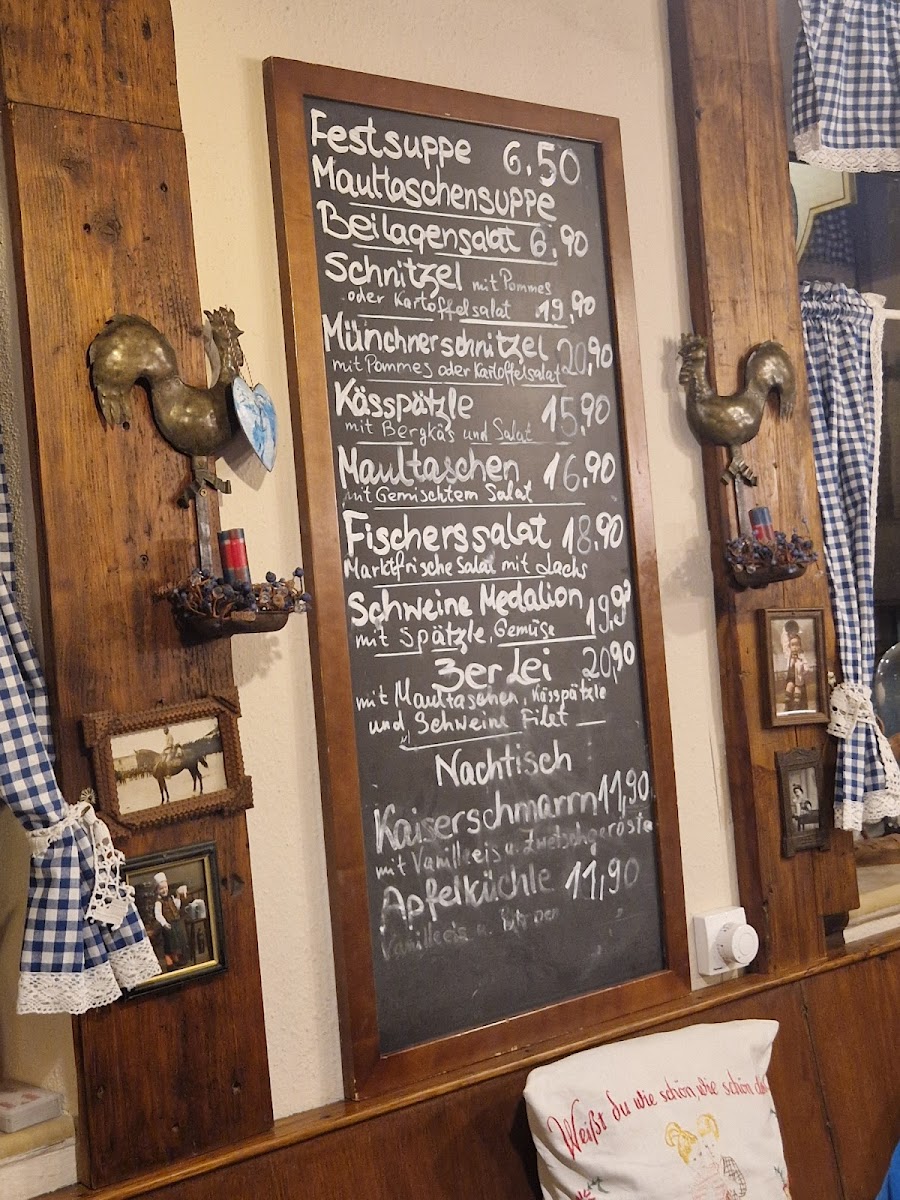 Festsuppe 6,50
Maultaschensuppe
Beilagensalat 6,90
Schnitzel mit Pommes
oder Kartoffelsalat 19,90
Münchnerschnitzel 20,90
mit Pommes oder Kartoffelsalat
Kässpätzle 15,90
mit Bergkäs und Salat
Maultaschen 16,90
mit Gemischtem Salat
Fischerssalat 18,90
Marktfrische Salat mit Lachs
Schweine Medalion 19,90
mit Spätzle, Gemüse
3erlei 20,90
mit Maultaschen, Kässpätzle
und Schweine Filet
Nachtisch
Kaiserschmarrn 11,90
mit Vanilleeis u. Zwetschgeröster
Apfelküchle 11,90
Vanilleeis u.
Weißt du wie schön, wie schön